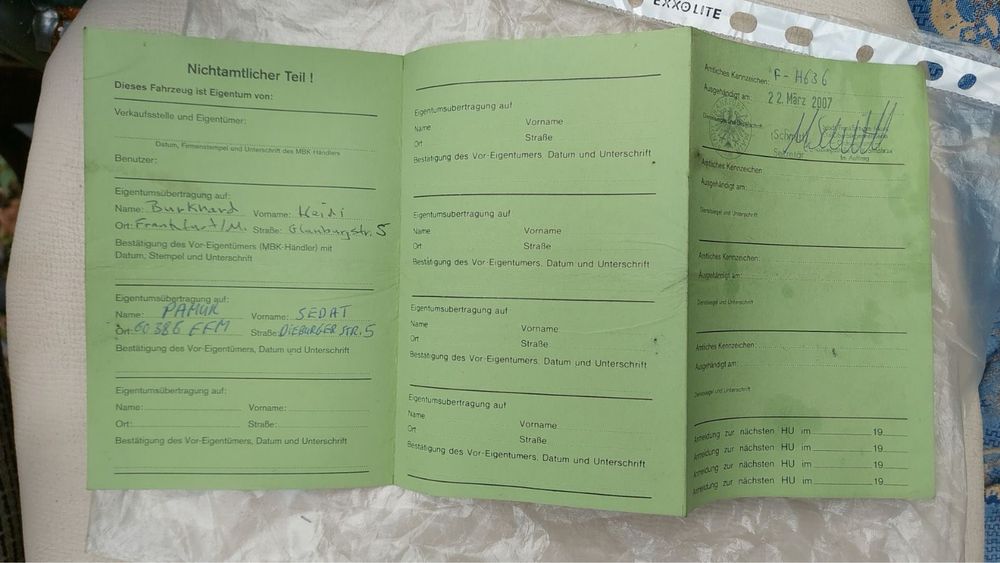 EXXOLITE
Nichtamtlicher Teil !
Dieses Fahrzeug ist Eigentum von:
Verkaufsstelle und Eigentümer:
Datum, Firmenstempel und Unterschrift des MBK-Händlers
Benutzer:
Eigentumsübertragung auf:
Name: Burkhard Vorname: Heidi
Ort: Frankfurt/M. Straße: Glauburgstr. 5
Bestätigung des Vor-Eigentümers (MBK-Händler) mit
Datum, Stempel und Unterschrift
Eigentumsübertragung auf:
Name: PAMUK Vorname: SEDAT
Ort: 60386 FFM Straße: DIEBURGER STR. 5
Bestätigung des Vor-Eigentümers, Datum und Unterschrift
Eigentumsübertragung auf:
Name: Vorname:
Ort: Straße:
Bestätigung des Vor-Eigentümers, Datum und Unterschrift
Eigentumsübertragung auf
Name Vorname
Ort Straße
Bestätigung des Vor-Eigentümers. Datum und Unterschrift
Eigentumsübertragung auf
Name Vorname
Ort Straße
Bestätigung des Vor-Eigentümers. Datum und Unterschrift
Eigentumsübertragung auf
Name Vorname
Ort Straße
Bestätigung des Vor-Eigentümers. Datum und Unterschrift
Eigentumsübertragung auf
Name Vorname
Ort Straße
Bestätigung des Vor-Eigentümers. Datum und Unterschrift
Amtliches Kennzeichen: F-H636
Ausgehändigt am: 22. März 2007
Dienstsiegel und Unterschrift
Im Auftrag
Amtliches Kennzeichen
Ausgehändigt am:
Dienstsiegel und Unterschrift
Amtliches Kennzeichen:
Ausgehändigt am:
Dienstsiegel und Unterschrift
Amtliches Kennzeichen:
Ausgehändigt am:
Dienstsiegel und Unterschrift
Anmeldung zur nächsten HU im 19
Anmeldung zur nächsten HU im 19
Anmeldung zur nächsten HU im 19
Anmeldung zur nächsten HU im 19